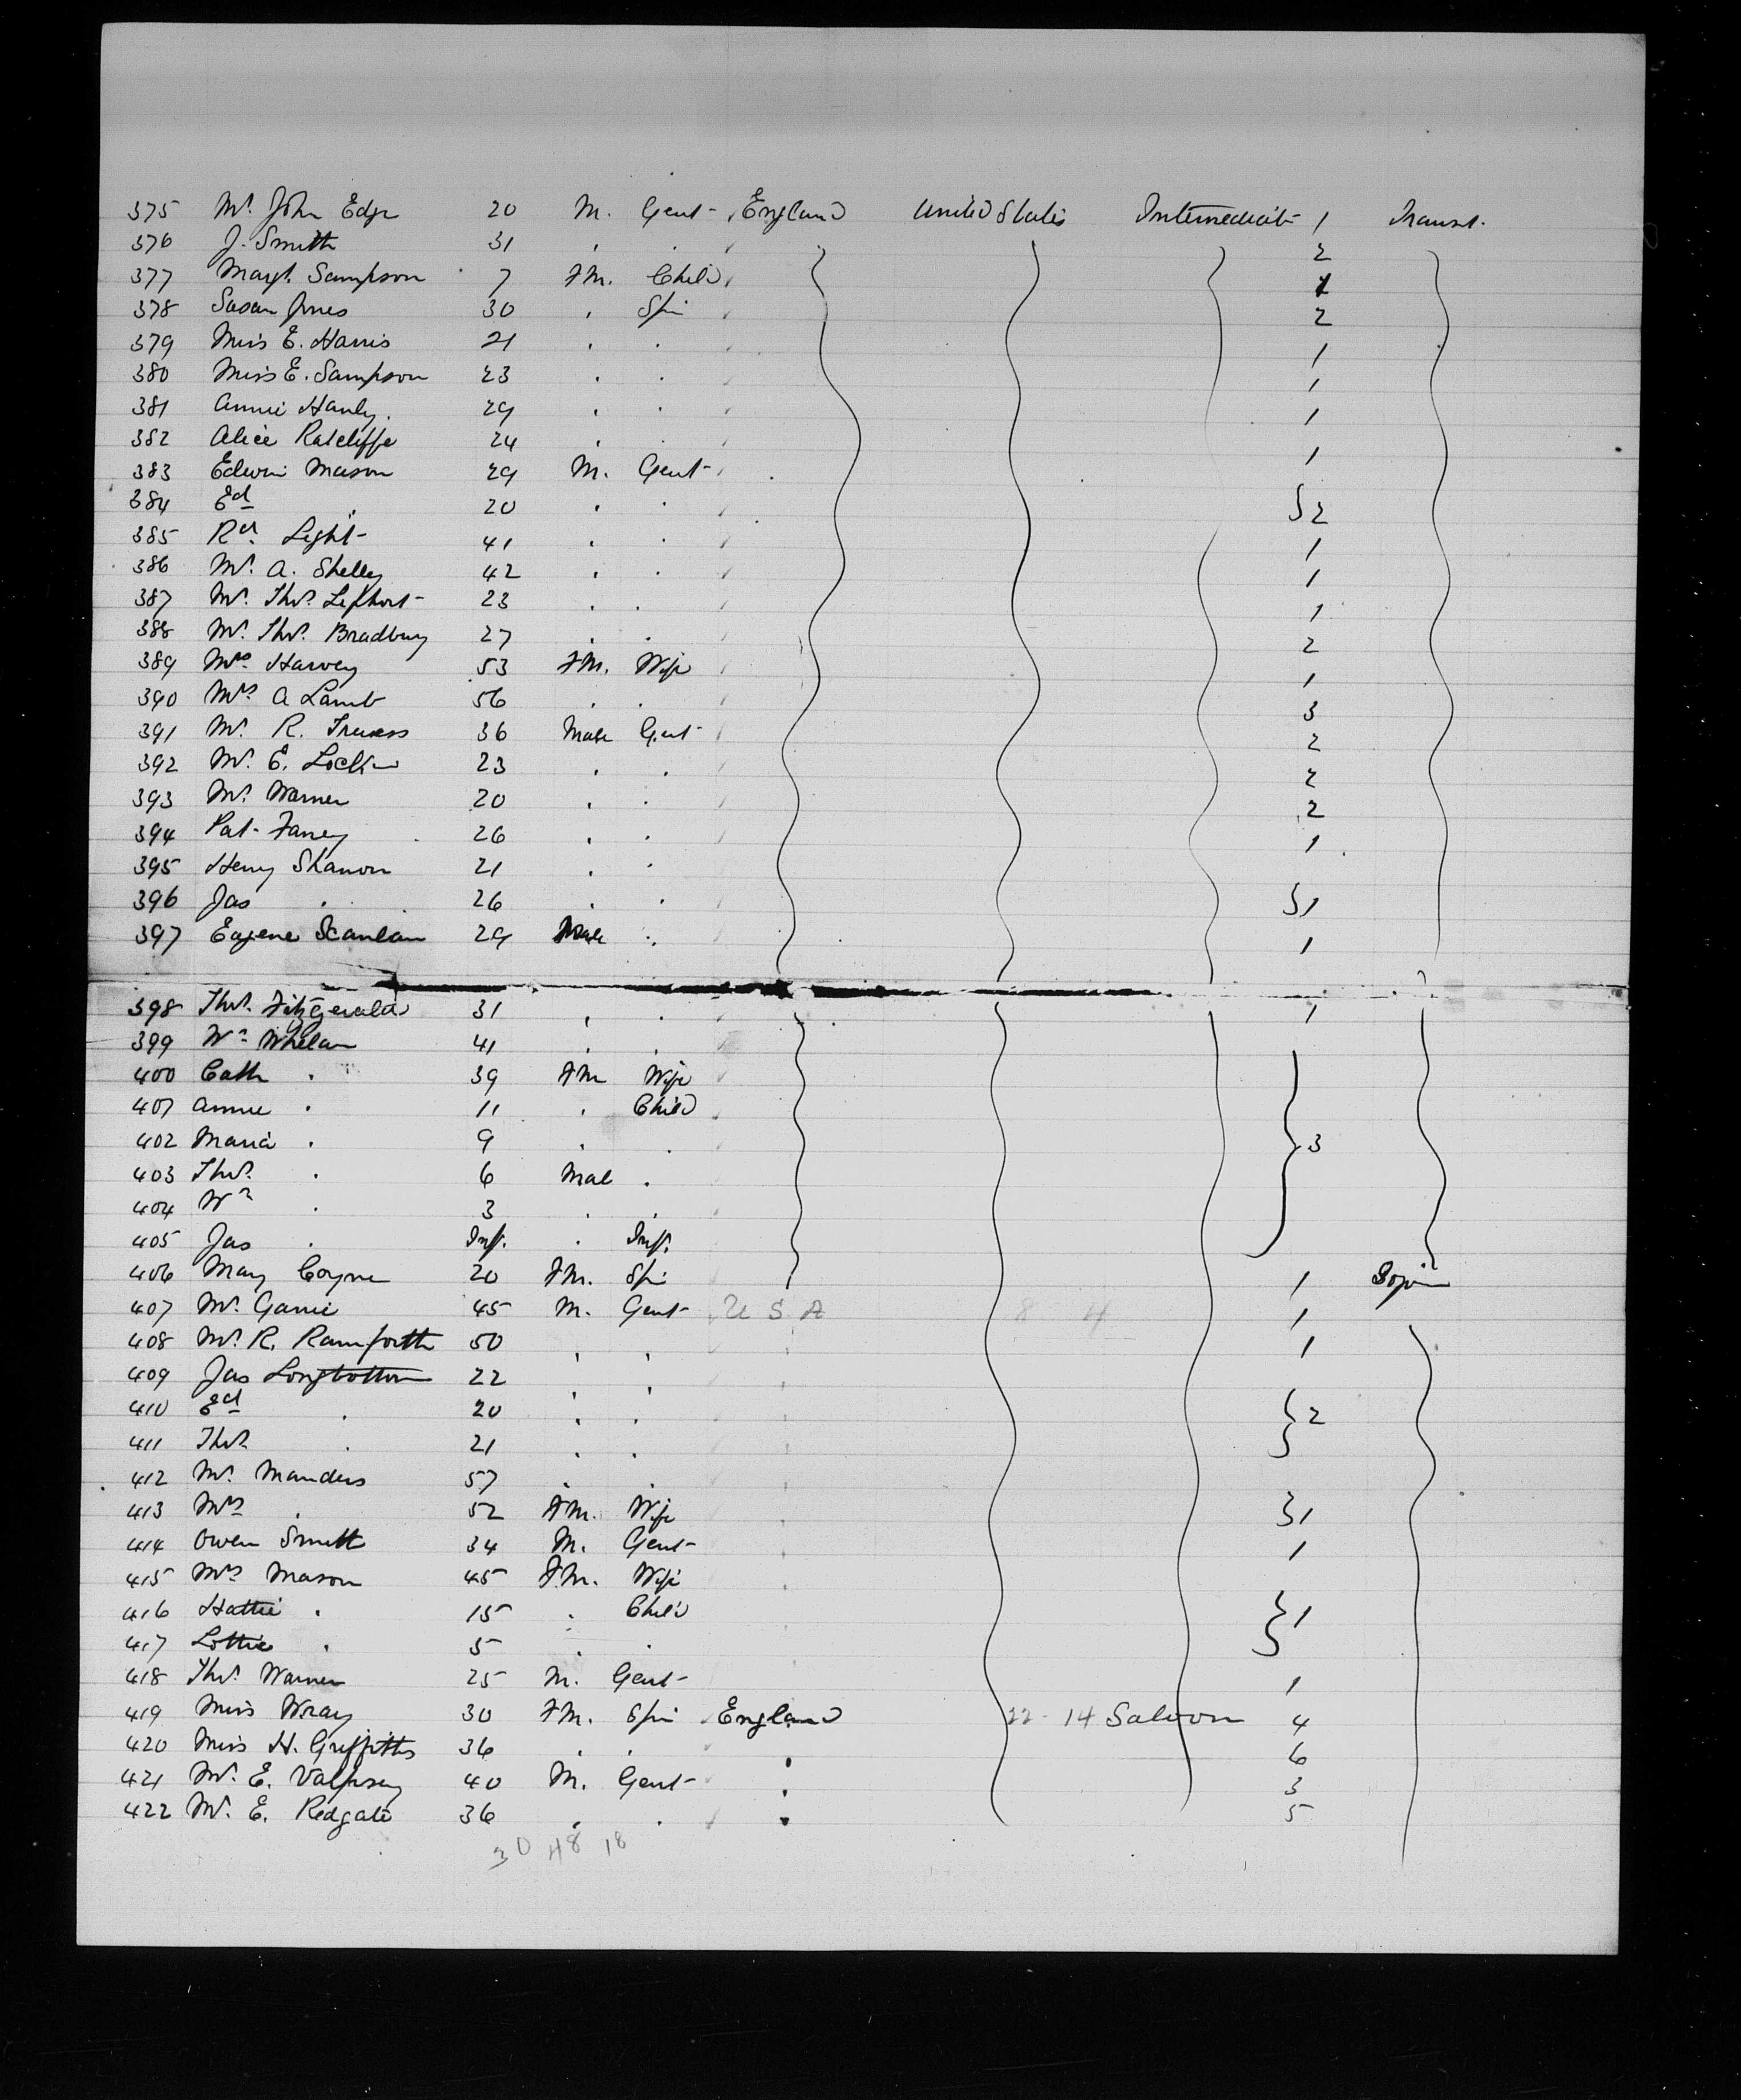 375 Mr. John Edge 20 M. Gent England United States Intermediate 1 Transt.
376 J. Smith 31 2
377 Margt. Sampson 7 FM. Child 1
378 Susan Jones 30 Spin 2
379 Miss E. Harris 21 1
380 Miss E. Sampson 23 1
381 Annie Hanly. 29 1
382 Alice Ratcliffe 24 1
383 Edwin Mason 29 M. Gent
384 Ed 20 2
385 Rd. Light 41 1
386 Mr. A. Shelley 42 1
387 Mr. Thos. 23 1
388 Mr. Thos. Bradbury 27 2
389 Mrs Harvey 53 FM. Wife 1
390 Mrs A Lamb 56 3
391 Mr. R. 36 Male Gent 2
392 Mr. E. 23 2
393 Mr. Warner 20 2
394 Pat. 26 1
395 Henry Shanon 21
396 Jas 26 1
397 Eugene Scanlan 29 Male 1
398 Thos. Fitzgerald 31 1
399 Wm Whelan 41
400 Cath 39 FM Wife
401 Annie 11 Child
402 Maria 9 3
403 Thos. 6 Mal
404 Wm 3
405 Jas Inf. Inf.
406 Mary Coyne 20 FM. Spi 1
407 Mr. 45 M. Gent U S A 8 4 1
408 Mr. R. 50 1
409 Jas Longbottom 22
410 Ed 20 2
411 Thos 21
412 Mr. Manders 57
413 Mrs 52 FM. Wife 1
414 Owen Smith 34 M. Gent 1
415 Mrs Mason 45 FM. Wife
416 Hattie 15 Child 1
417 Lottie 5
418 Thos. Warner 25 M. Gent 1
419 Miss Wray 30 FM. Spi England 22 - 14 Saloon 4
420 Miss H. Griffiths 36 6
421 Mr. E. 40 M. Gent 3
422 Mr. E. Redgate 36 5
30 48 18